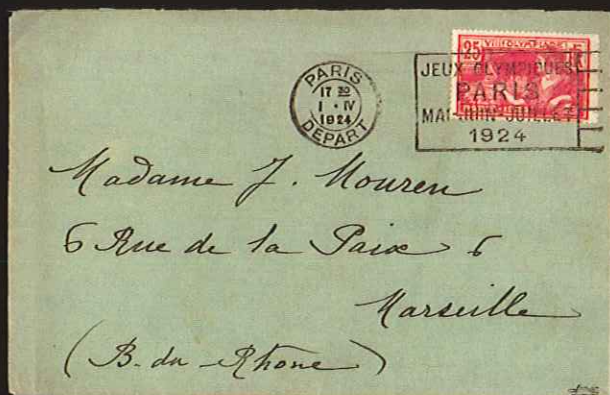 25 VIIIE OLYMPIADE
PARIS
17 30
1 · IV
1924
DEPART
JEUX OLYMPIQUES
PARIS
MAI-JUIN-JUILLET
1924
Madame J. Mouren
6 Rue de la Paix 6
Marseille
(B. du Rhone)